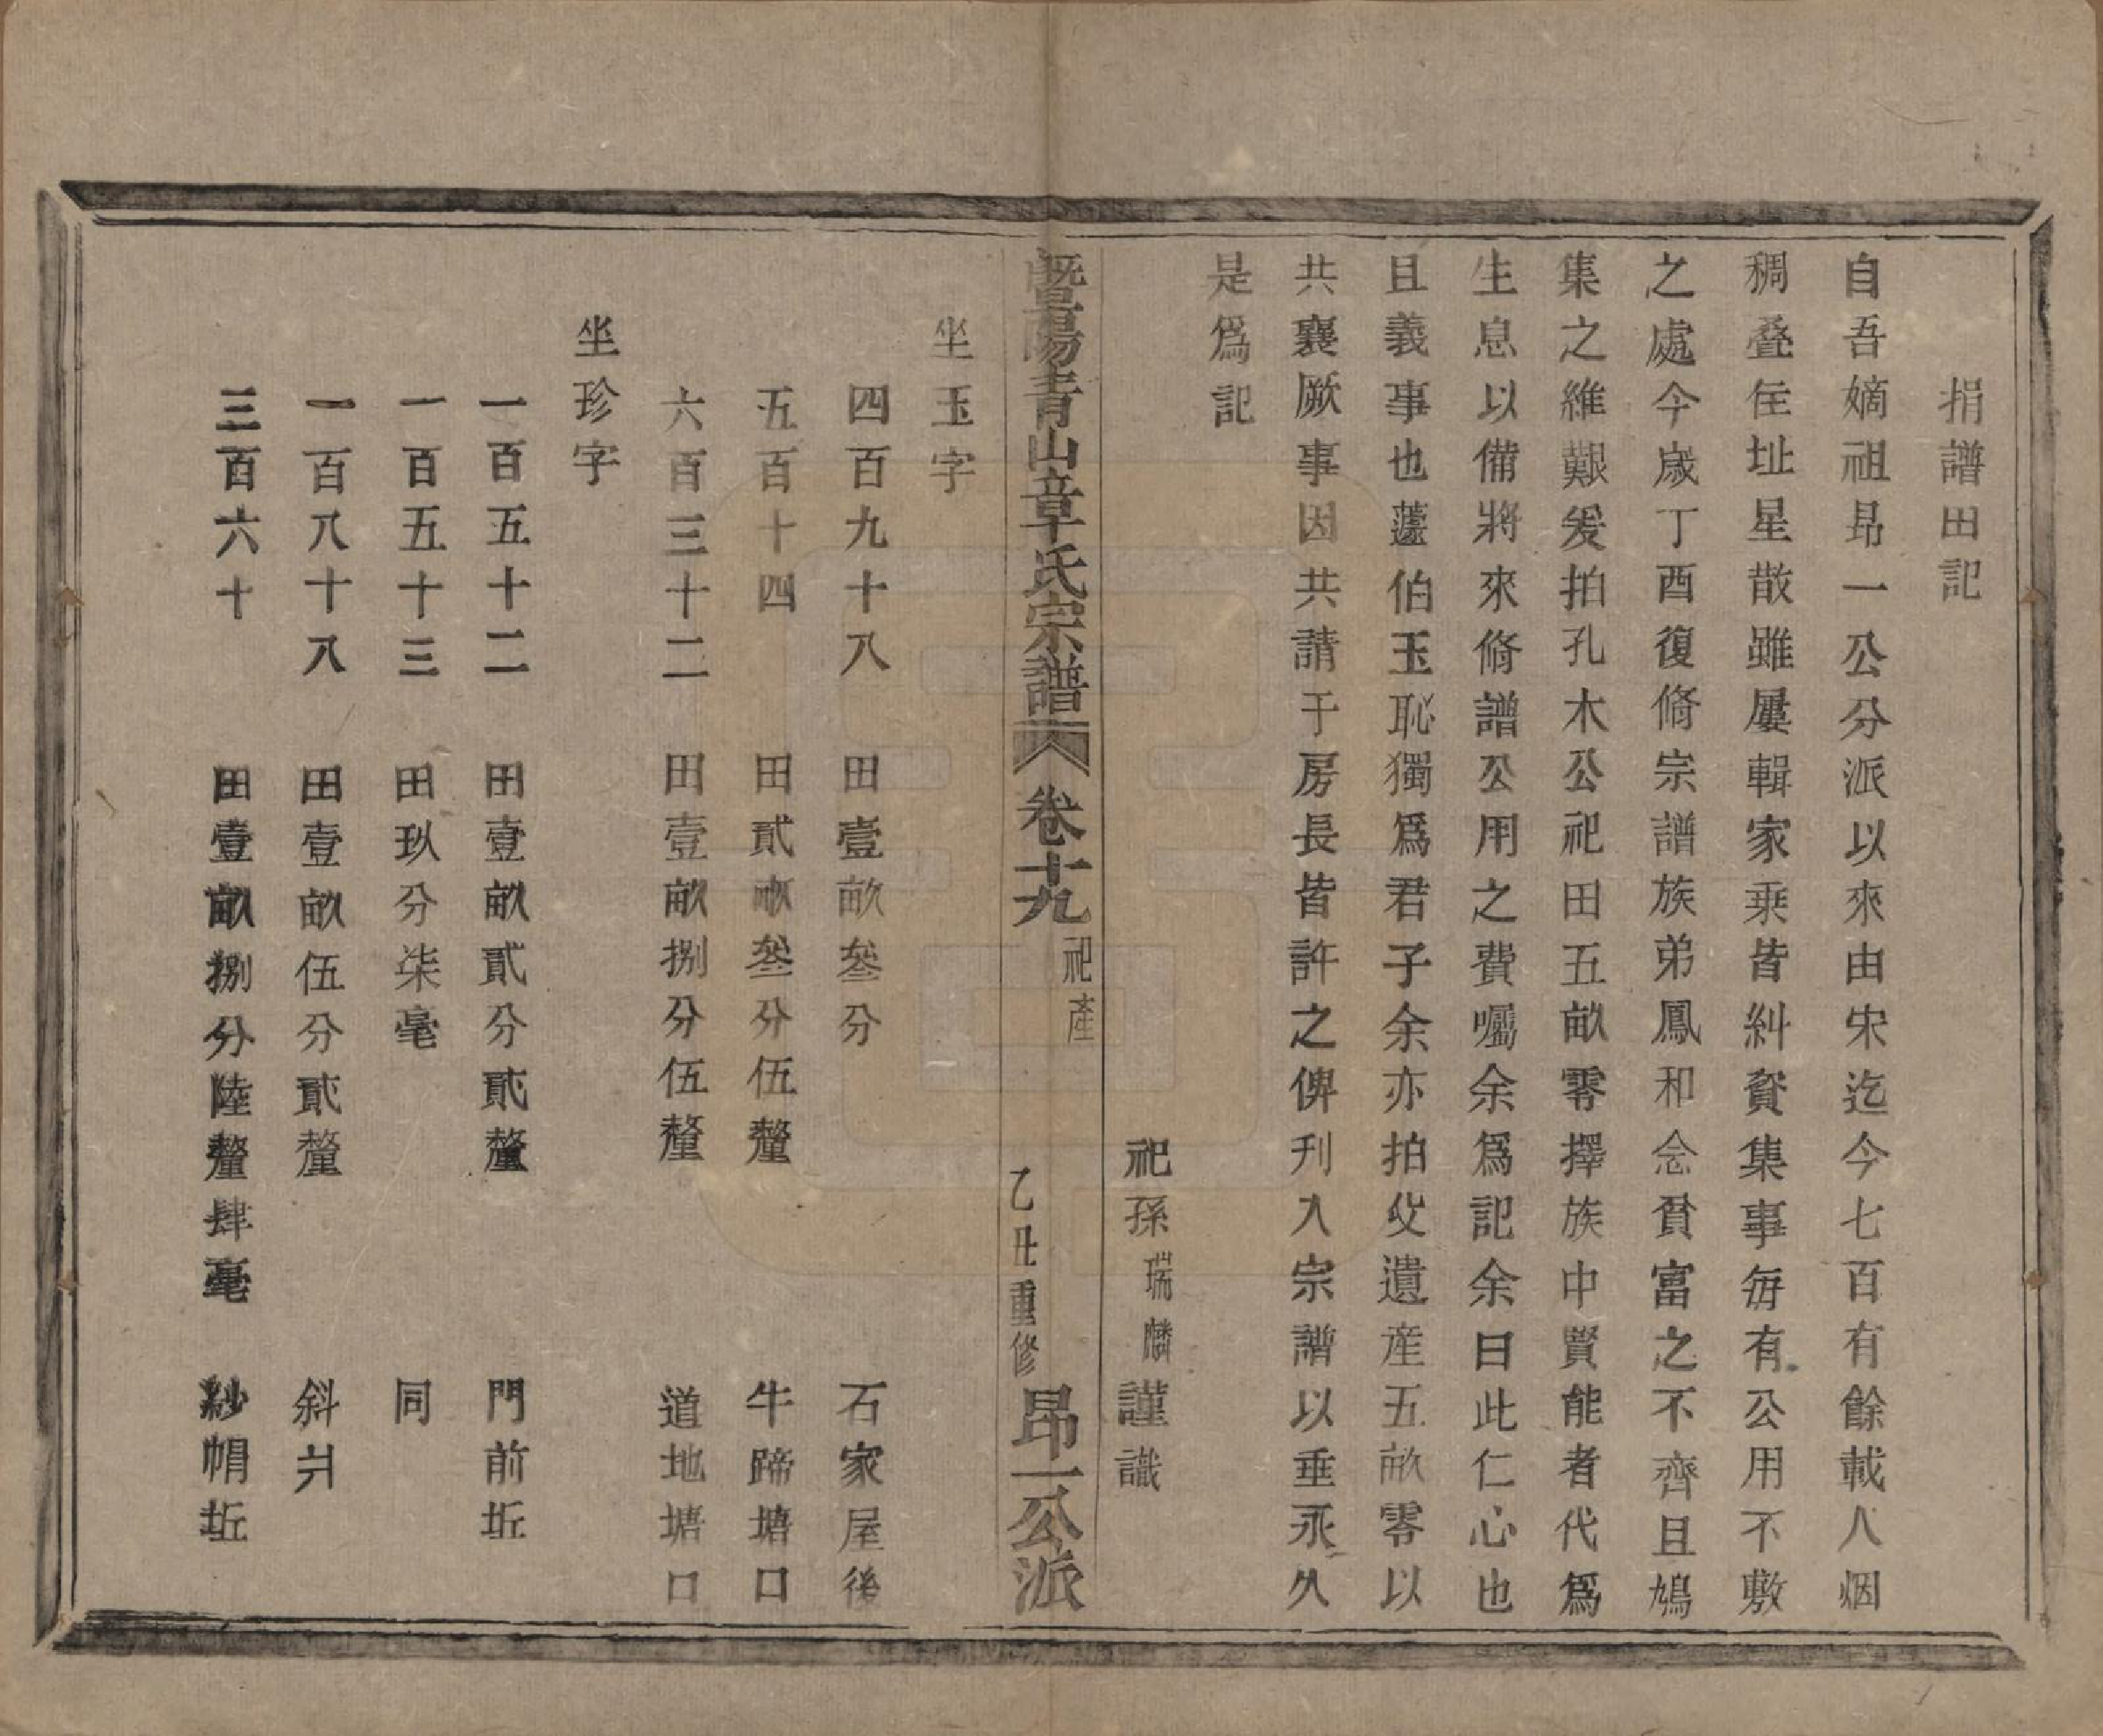 捐譜田記
自吾嫡祖昻一公分派以來由宋迄今七百有餘載人烟
稠叠住址星散雖屢輯家乘皆糾資集事每有公用不敷
之處今歲丁酉復脩宗譜族弟鳳和念貧富之不齊且鳩
集之維艱爰拍孔木公祀田五畝零擇族中賢能者代爲
生息以備將來脩譜公用之費囑余爲記余曰此仁心也
且義事也蘧伯玉恥獨爲君子余亦拍父遺産五畝零以
共襄厥事因共請于房長皆許之俾刋入宗譜以垂永久
是爲記
祀孫瑞麟謹識
暨陽青山章氏宗譜 卷十九 祀產 乙丑重修 昻一公派
坐玉字
四百九十八 田壹畝叄分 石家屋後
五百十四 田貳畝叄分伍釐 牛蹄塘口
六百三十二 田壹畝捌分伍釐 道地塘口
坐珍字
一百五十二 田壹畝貳分貳釐 門前坵
一百五十三 田玖分柒毫 同
一百八十八 田壹畝伍分貳釐 斜爿
三百六十 田壹畝捌分陸釐肆毫 紗帽坵